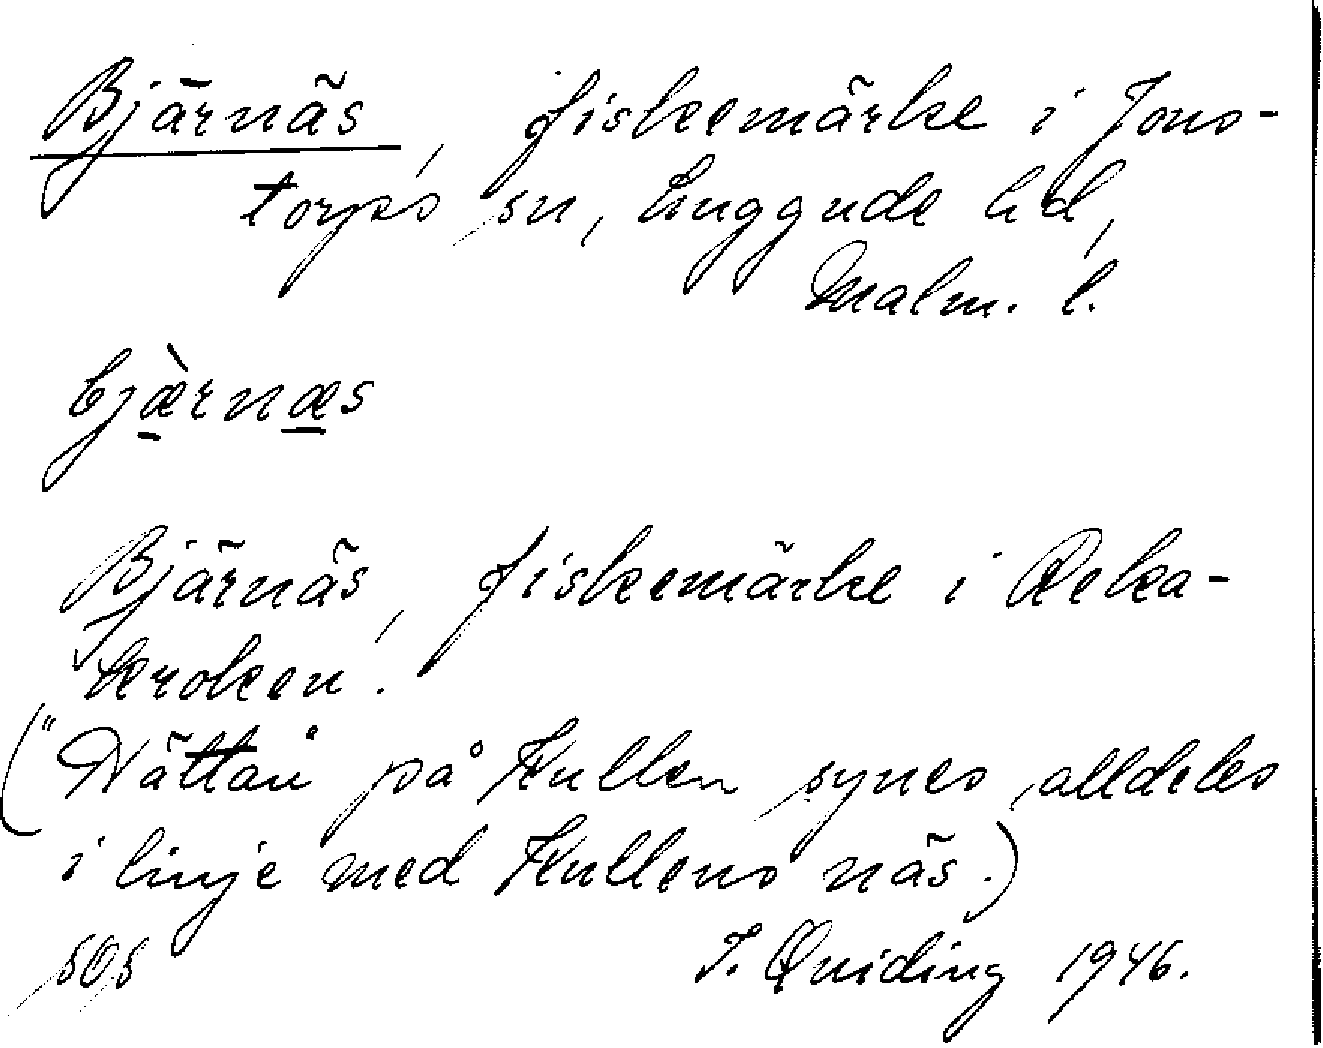 Bjärnäs, fiskemärke i Jons-
torps sn, Luggude hd,
Malm. l.
bjæ̀rnæs
Bjärnäs, fiskemärke i Reka-
kroken.
("Nättan" på Kullen synes alldeles
i linje med Kullens näs.)
SOS I. Quiding 1946.